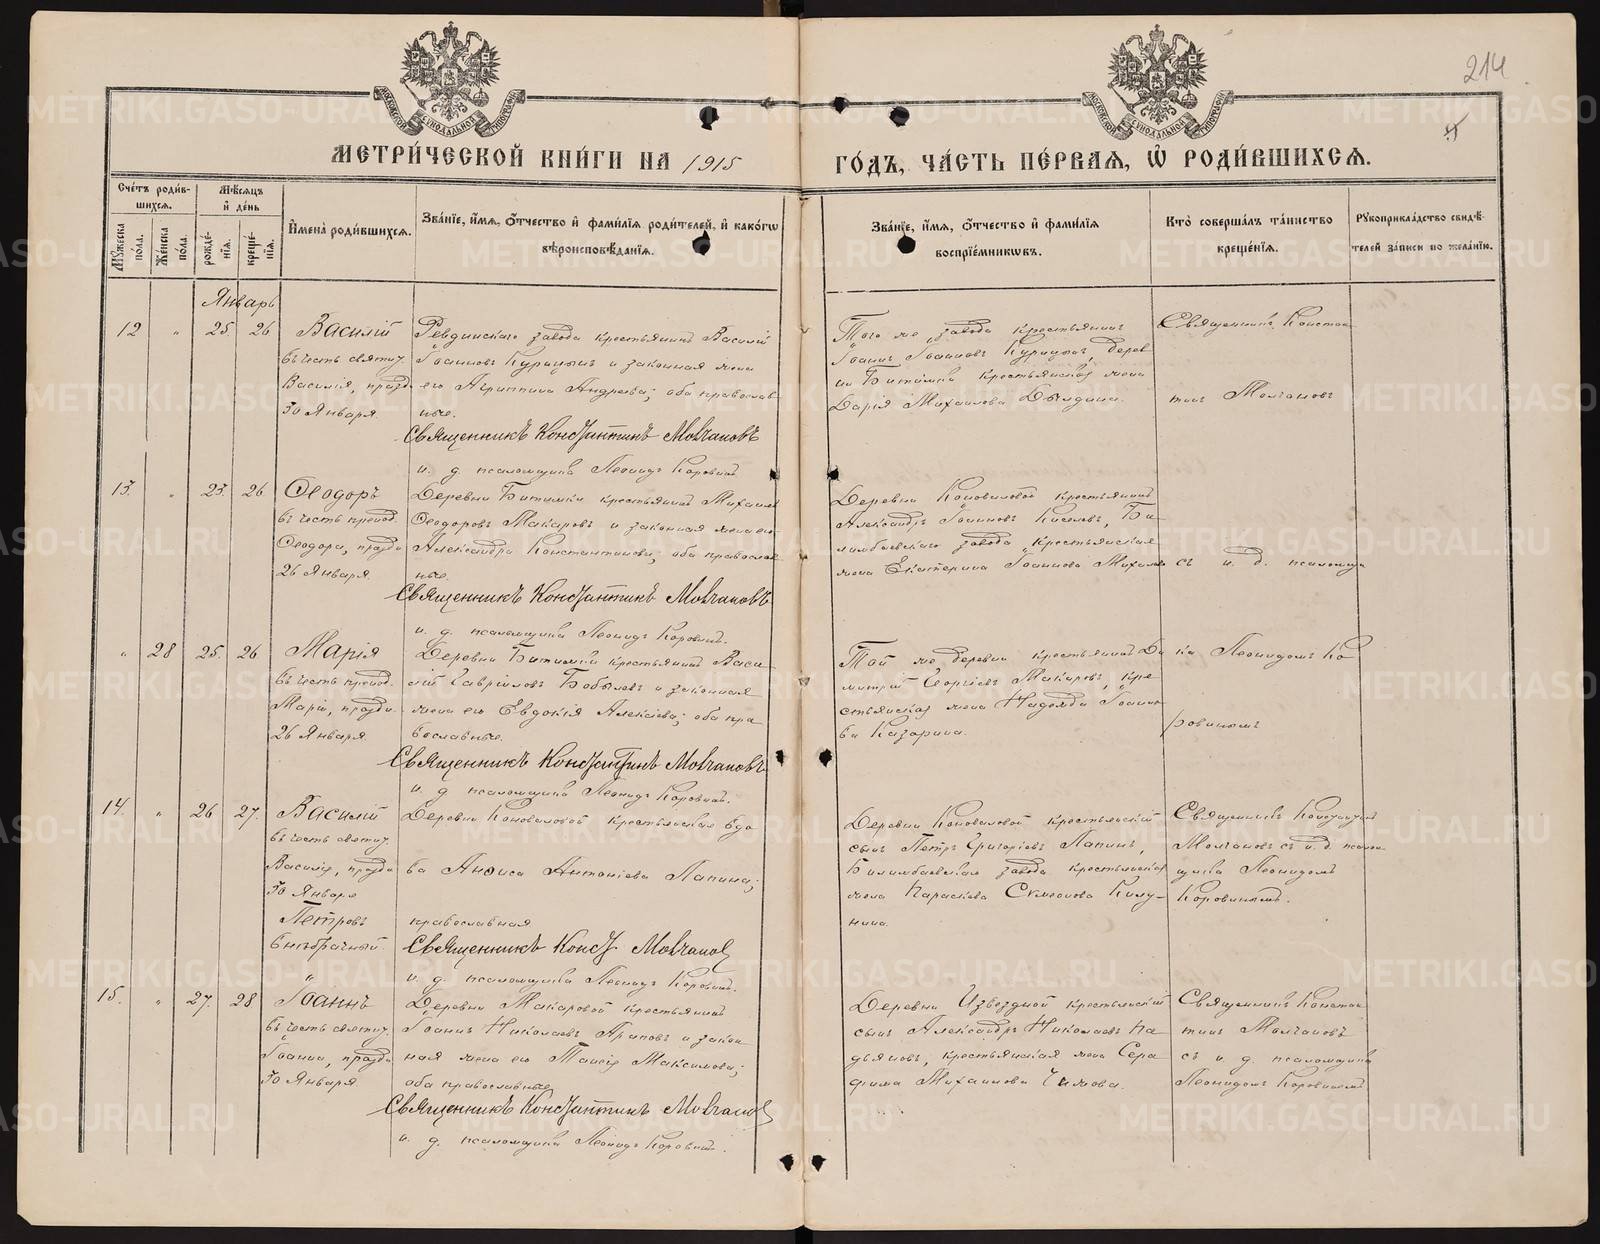 214
МЕТРИ́ЧЕСКОЙ КНИ́ГИ НА 1915 ГО́ДЪ, ЧА́СТЬ ПЕ́РВАЯ, Ѡ РОДИ́ВШИХСЯ.
МОСКОВСКОЙ СѴНОДАЛЬНОЙ ТИПОГРАФІИ
МОСКОВСКОЙ СѴНОДАЛЬНОЙ ТИПОГРАФІИ
Сче́тъ роди́в-
шихся.
Му́жеска
по́ла.
Же́нска
по́ла.
Мѣ́сяцъ
и де́нь
рожде́-
нїя.
креще́-
нїя.
И҆мена̀ роди́вшихся.
Зва́нїе, и҆́мя, ѻ҆́тчество и҆ фами́лїя роди́телей, и҆ како́гѡ
вѣроисповѣ́данїя.
Зва́нїе, и҆́мя, ѻ҆́тчество и҆ фами́лїя
воспрїе́мникѡвъ.
Кто̀ соверша́лъ та́инство
креще́нїя.
Рꙋкоприкла́дство свидѣ́-
телей за́писи по жела́нїю.
Январь
12 " 25 26
Василій
въ честь святит.
Василія, празд.
30 Января
Ревдинскаго завода крестьянинъ Василій
Іоанновъ Курицынъ и законная жена
его Агриппина Андреева; оба православ-
ные.
Священникъ Константинъ Молчановъ
и. д. псаломщика Леонидъ Коровинъ
Того же завода крестьянинъ
Іоаннъ Іоанновъ Курицынъ, дерев
ни Битимки крестьянская жена
Дарія Михаилова Дылдина.
Священникъ Констан
тинъ Молчановъ
13. " 23. 26
Ѳеодоръ
въ честь препод.
Ѳеодора, празд.
26 Января.
Деревни Битимки крестьянинъ Михаилъ
Ѳеодоровъ Макаровъ и законная жена его
Александра Константинова; оба православ
ные.
Священникъ Константинъ Молчановъ
и. д. псаломщика Леонидъ Коровинъ.
Деревни Коноваловой крестьянинъ
Александръ Іоанновъ Киселевъ, Би-
лимбаевскаго завода крестьянская
жена Екатерина Іоаннова
съ и. д. псаломщи
" 28 25. 26
Марія
въ честь препод.
Маріи, празд.
26 Января.
Деревни Битимки крестьянинъ Васи-
лій Гавріиловъ Бобылевъ и законная
жена его Евдокія Алексіева; оба пра
вославные.
Священникъ Константинъ Молчановъ
и. д. псаломщика Леонидъ Коровинъ.
Той же деревни крестьянинъ Ди
митрій Георгіевъ Макаровъ, кре
стьянская жена Надежда Іоанно-
ва Казарина.
ка Леонидомъ Ко
ровинымъ
14. " 26 27.
Василій
въ честь святит.
Василія, празд.
30 Января
Петровъ
внѣбрачный
Деревни Коноваловой крестьянская вдо
ва Анѳиса Антоніева Лапина;
православная
Священникъ Конст. Молчановъ
и. д. псаломщика Леонидъ Коровинъ.
Деревни Коноваловой крестьянскій
сынъ Петръ Григоріевъ Лапинъ,
Билимбаевскаго завода крестьянская
жена Параскева Симеонова
нина.
Священникъ Константинъ
Молчановъ съ и. д. псалом
щика Леонидомъ
Коровинымъ.
15. " 27. 28
Іоаннъ
въ честь святит.
Іоанна, празд.
30 Января
Деревни Макаровой крестьянинъ
Іоаннъ Николаевъ Араповъ и закон
ная жена его Таисія Максимова;
оба православные
Священникъ Константинъ Молчановъ
и. д. псаломщика Леонидъ Коровинъ.
Деревни Извездной крестьянскій
сынъ Александръ Николаевъ Ка-
дьяновъ, крестьянская жена Сера
фима Михаилова
Священникъ Констан
тинъ Молчановъ
съ и. д. псаломщика
Леонидомъ Коровинымъ
METRIKI.GASO-URAL.RU